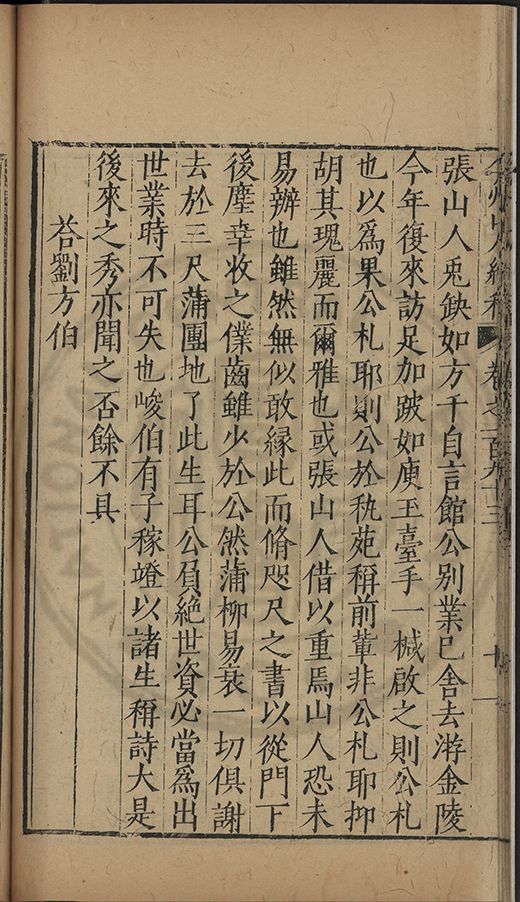 張山人兎缺如方千自言館公别業已舍去游金陵
今年復來訪足加跛如庾王臺手一椷啟之則公札
也以爲果公札耶則公於秇苑稱前輩非公札耶抑
胡其瑰麗而爾雅也或張山人借以重焉山人恐未
易辦也雖然無似敢緣此而脩咫尺之書以從門下
後塵幸收之僕齒雖少於公然蒲柳易衰一切俱謝
去於三尺蒲團地了此生耳公負絶世資必當爲出
世業時不可失也峻伯有子稼竳以諸生稱詩大是
後來之秀亦聞之否餘不具
荅劉方伯
卷之一百九十三